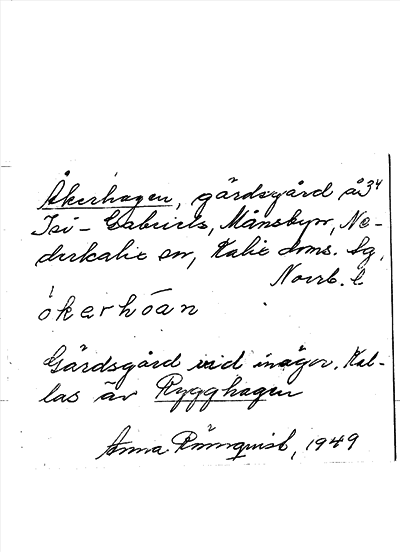 Åkerhagen, gärdsgård å 34
Isi-Gabriels, Månsbyn, Ne-
derkalix sn, Kalix doms. sg,
Norrb. l
åkerhōan
Gärdsgård vid inägor. Kal-
las äv Rygghagen
Anna Römquist, 1949